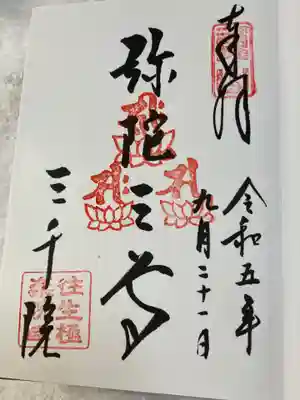 奉拝
令和五年
九月二十一日
弥陀三尊
三千院
往生極
楽院印